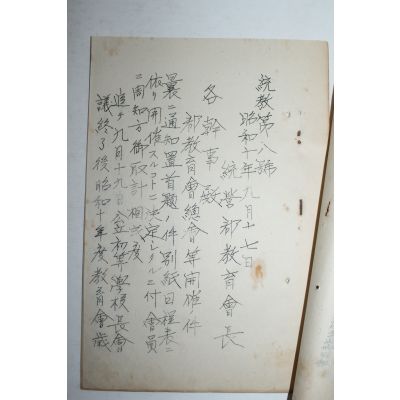 統教第八號
昭和十年九月十七日
統營郡教育會長
各幹事殿
郡教育會總會等開催ノ件
曩ニ通知置首題ノ件別紙日程表ニ
依リ開催スルコトニ決定シタルニ付會員
ニ周知方御取計相成度
追テ九月十九日公立初等學校長會
議終了後昭和十年度教育會歳